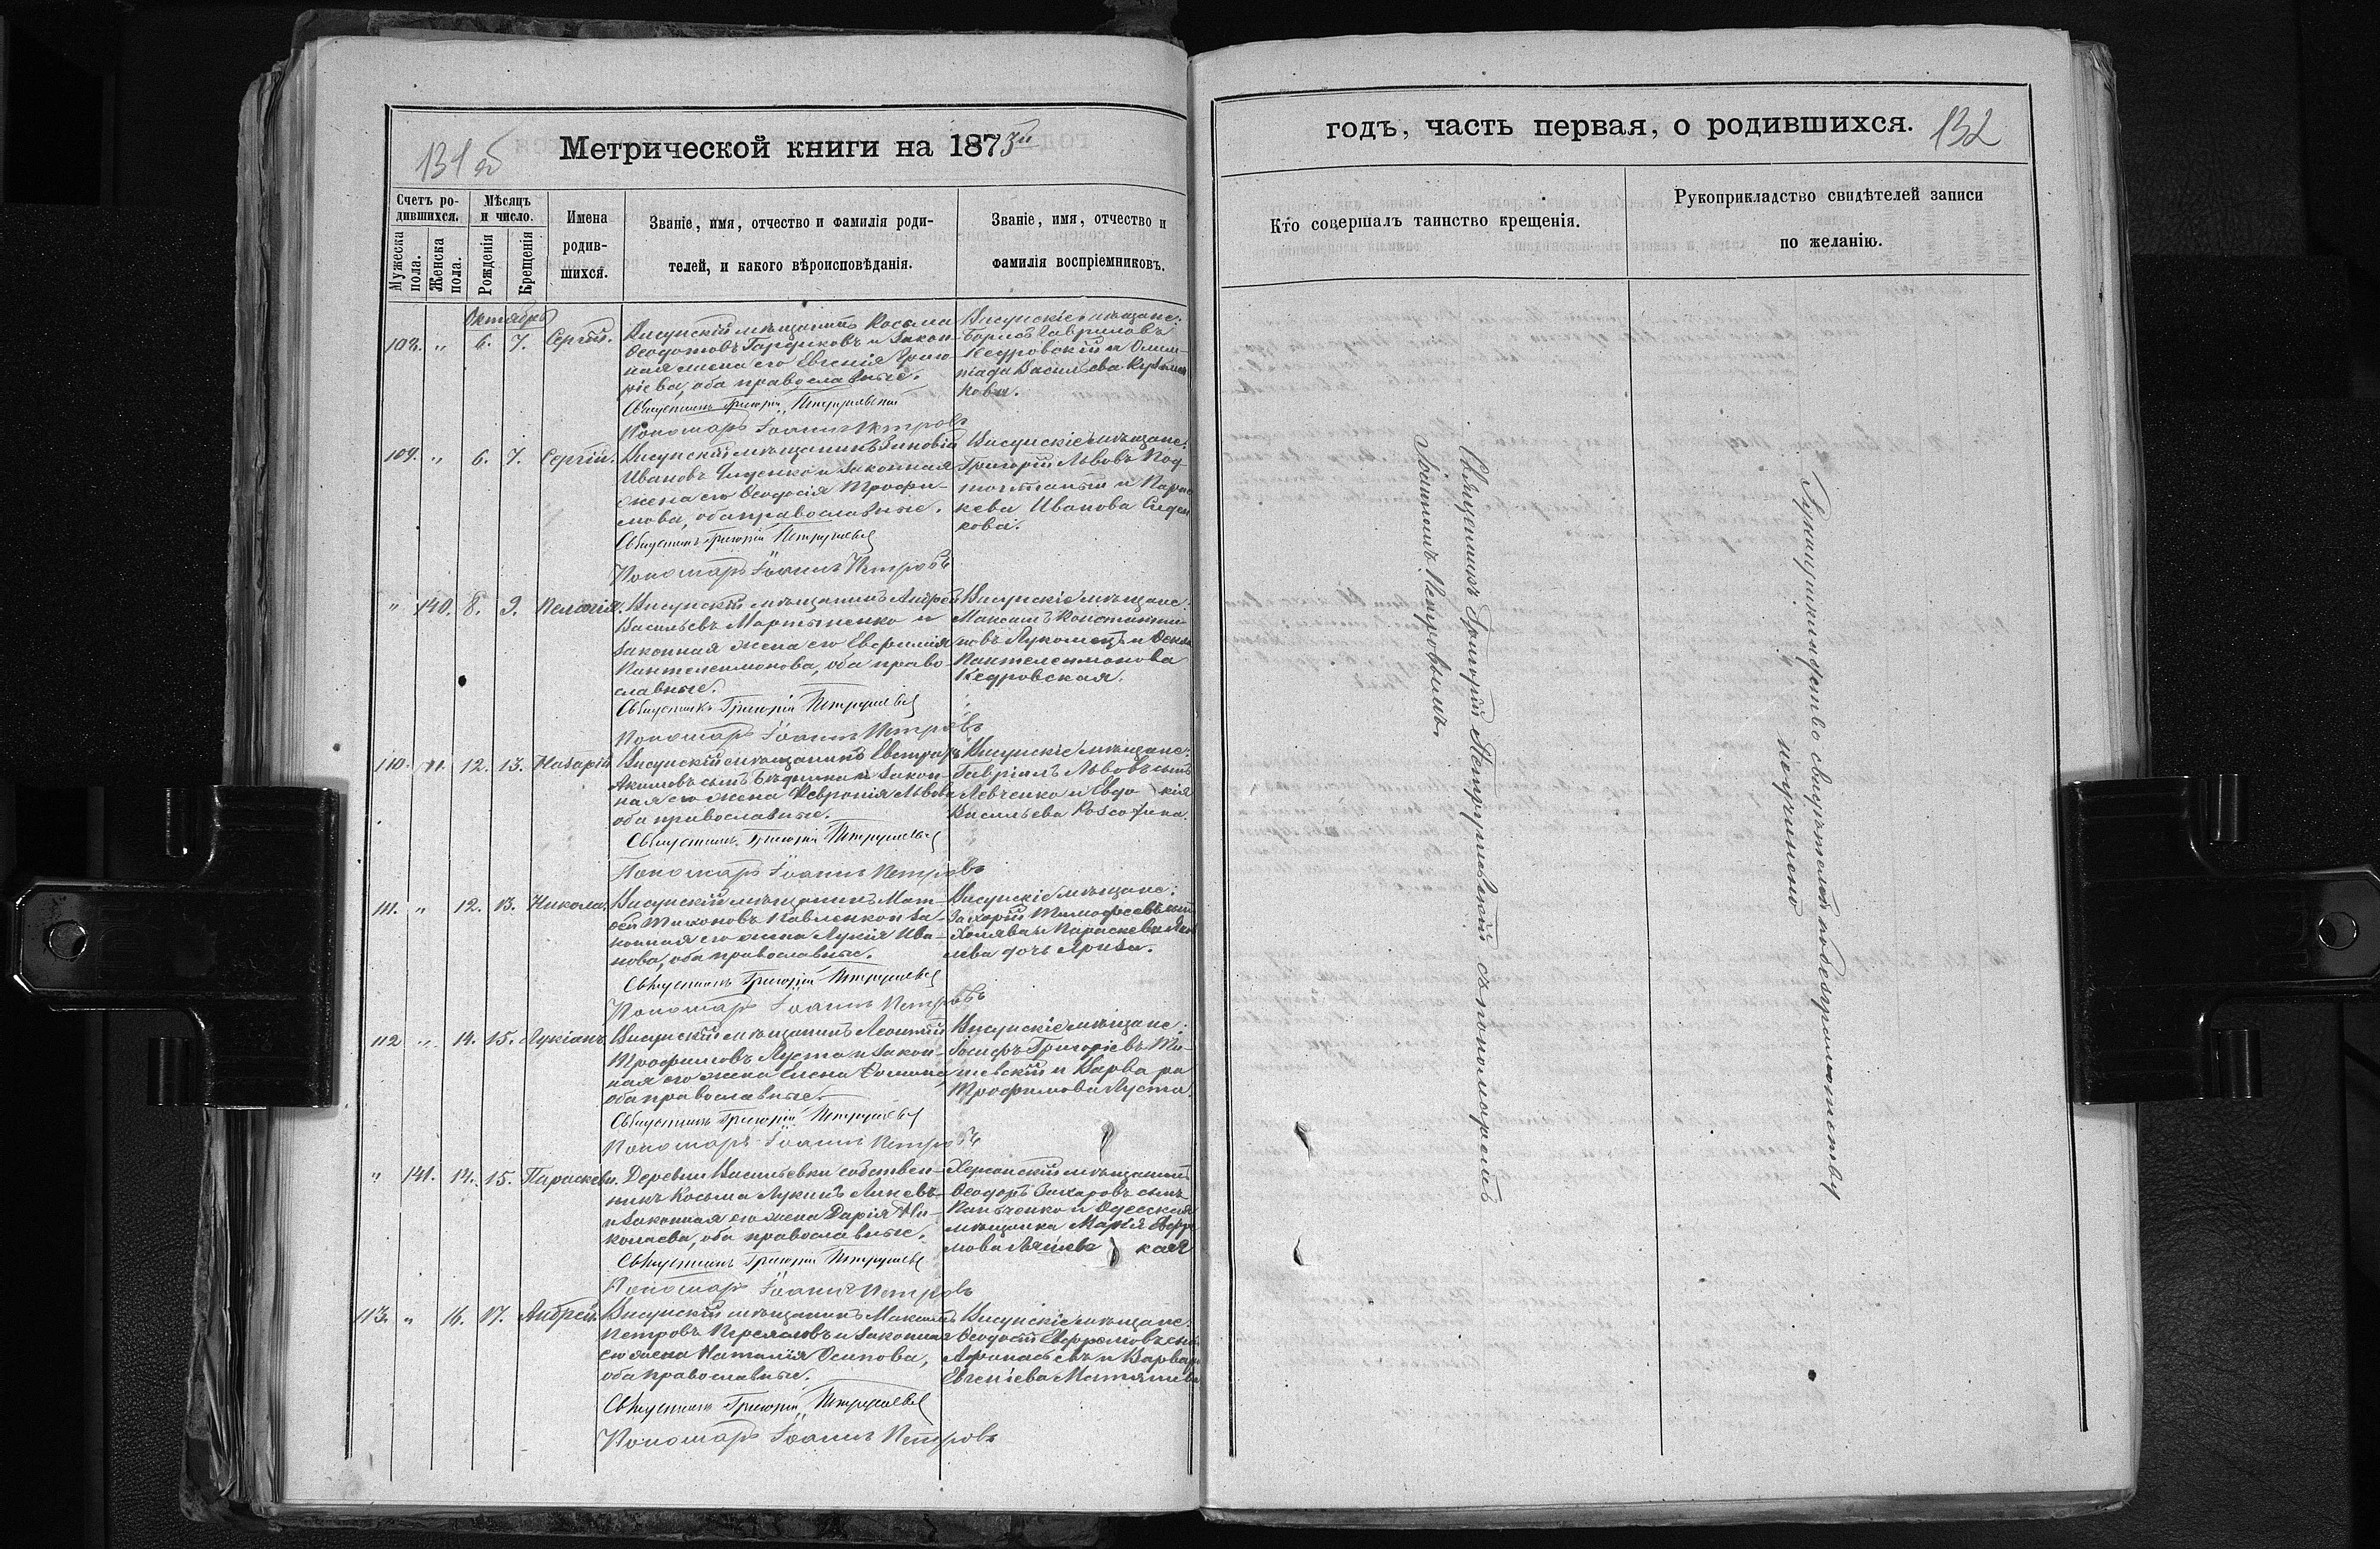 131 об
Метрической книги на 1873й
Счетъ ро-
дившихся.
Мѣсяцъ
и число.
Мужеска пола.
Женска пола.
Рожденія
Крещенія
Имена
родив-
шихся.
Званіе, имя, отчество и фамилія роди-
телей, и какого вѣроисповѣданія.
Званіе, имя, отчество и
фамилія воспріемниковъ.
Октябрь
108. " 6. 7. Сергій.
Висунскій мѣщанинъ Косьма
Ѳеодотовъ и закон-
ная жена его Евгенія Григо-
ріева, оба православные.
Священникъ Григорій
Пономарь Іоаннъ Петровъ
Висунскіе мѣщане:
Борисъ Гавриловъ
Кедровскій и Олим-
піада Васильева
кова.
109. " 6. 7. Сергій.
Висунскій мѣщанинъ Зиновій
Ивановъ и законная
жена его Ѳеодосія Трофи-
мова, оба православные.
Священникъ Григорій
Пономарь Іоаннъ Петровъ
Висунскіе мѣщане:
Григорій Львовъ Под-
и Парас-
кева Иванова
кова.
" 140. 8. 9. Пелагія.
Висунскій мѣщанинъ Андрей
Васильевъ Мартыненко и
законная жена его Евфимія
Пантелеимонова, оба право-
славные.
Священникъ Григорій
Пономарь Іоаннъ Петровъ
Висунскіе мѣщане:
Максимъ Константи-
новъ Лукомецъ и
Пантелеимонова
Кедровская.
110. " 12. 13. Назарій.
Висунскій мѣщанинъ
Акимовъ сынъ и закон-
ная его жена Февронія Львова
оба православные.
Священникъ Григорій
Пономарь Іоаннъ Петровъ
Висунскіе мѣщане:
Гавріилъ Львовъ сынъ
Левченко и Евдокія
Васильева
111. " 12. 13. Николай.
Висунскій мѣщанинъ Мат-
ѳей Тихоновъ Павленко и за-
конная его жена Лукія Ива-
нова, оба православные.
Священникъ Григорій
Пономарь Іоаннъ Петровъ
Висунскіе мѣщане:
Захарій Тимофеевъ сынъ
Холява и Параскева
лева дочь
112 " 14. 15. Лукіанъ
Висунскій мѣщанинъ Леонтій
Трофимовъ Луста и закон-
ная его жена Елена Ѳомина,
оба православные.
Священникъ Григорій
Пономарь Іоаннъ Петровъ
Висунскіе мѣщане:
Іосифъ Григоріевъ
и Варвара
Трофимова Луста.
" 141. 14. 15. Параскева.
Деревни Васильевки собствен-
никъ Косьма Лукинъ
и законная его жена Дарія Ни-
колаева, оба православные.
Священникъ Григорій
Пономарь Іоаннъ Петровъ
Херсонскій мѣщанинъ
Ѳеодоръ Захаровъ сынъ
и Одесская
мѣщанка Марія
мова
113. " 16. 17. Андрей.
Висунскій мѣщанинъ Максимъ
Петровъ и законная
его жена Наталія Осипова,
оба православные.
Священникъ Григорій
Пономарь Іоаннъ Петровъ
Висунскіе мѣщане:
Ѳеодосій сынъ
Афанасьевъ и Варвара
Евгеніева
годъ, часть первая, о родившихся.
132
Кто совершалъ таинство крещенія.
Рукоприкладство свидѣтелей записи
по желанію.
Священникъ Григорій Петрушевскій съ пономаремъ
Іоанномъ Петровымъ.
Рукоприкладство свидѣтелей по безграмотству
не учинено